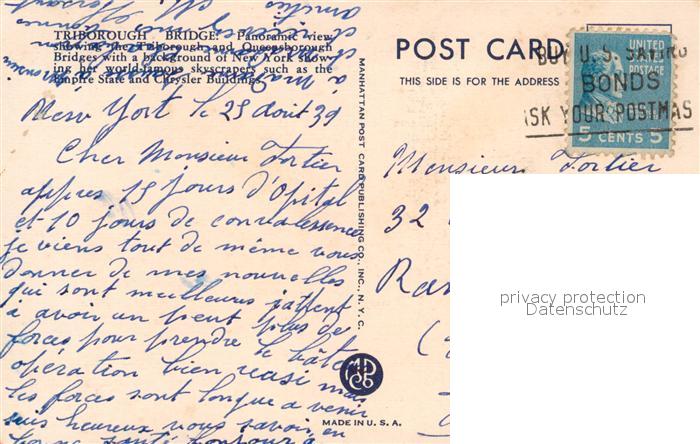 TRIBOROUGH BRIDGE: Panoramic view
showing the Triborough and Queensborough
Bridges with a background of New York show-
ing her world-famous skyscrapers such as the
Empire State and Chrysler Buildings.
New York le 25 Août 39
Cher Monsieur Fortier
appres 15 jours d'Opital
et 10 jours de convalessence
je viens tout de même vous
donner de mes nouvelles
qui sont meilleures j'attent
à avoir un peut plus de
forces pour prendre le bâteau
opération bien reusi mais
les forces sont longue a venir
suis heureux vous savoir en
bonne santé bonjour à
MANHATTAN POST CARD PUBLISHING CO., INC., N.Y.C.
MADE IN U.S.A.
POST CARD
THIS SIDE IS FOR THE ADDRESS
BUY U.S. SAVING
BONDS
ASK YOUR POSTMAS
UNITED
POSTAGE
5 CENTS 5
Monsieur Fortier
32
Ran
privacy protection
Datenschutz